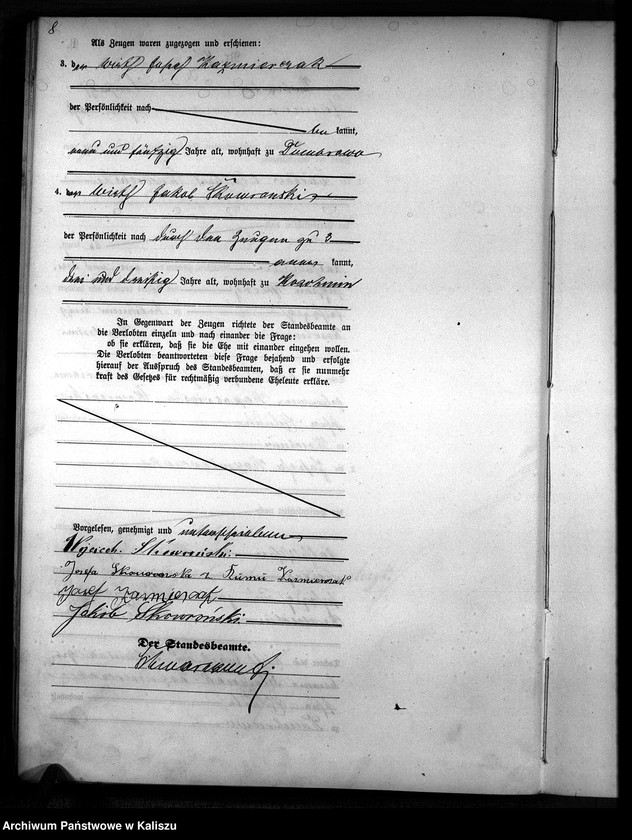 8
Als Zeugen waren zugezogen und erschienen:
3. der Wirth Josef Kaźmierczak
der Persönlichkeit nach
be kannt,
neun und fünfzig Jahre alt, wohnhaft zu Tomarowo
4. der Wirth Jakob Skowronski
der Persönlichkeit nach durch den Zeugen zu 3
aner kannt,
drei und dreißig Jahre alt, wohnhaft zu Koschmin
In Gegenwart der Zeugen richtete der Standesbeamte an
die Verlobten einzeln und nach einander die Frage:
ob sie erklären, daß sie die Ehe mit einander eingehen wollen.
Die Verlobten beantworteten diese Frage bejahend und erfolgte
hierauf der Ausspruch des Standesbeamten, daß er sie nunmehr
kraft des Gesetzes für rechtmäßig verbundene Eheleute erkläre.
Vorgelesen, genehmigt und unterschrieben
Wojciech Skowroński.
Josefa Skowronska z Kaźmierczak
Josef Kazmierczak
Jakób Skowroński.
Der Standesbeamte.
Archiwum Państwowe w Kaliszu